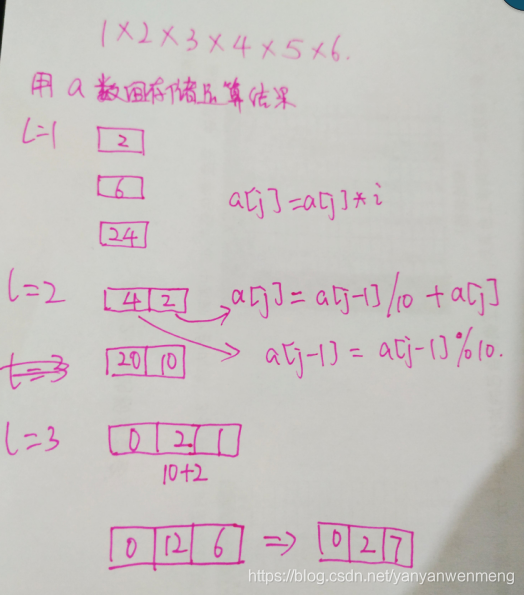 1×2×3×4×5×6.
用a数组存储运算结果
l=1
2
6
a[j]=a[j]*i
24
l=2
4 2
a[j]=a[j-1]/10+a[j]
a[j-1]=a[j-1]%10.
l=3
20 10
l=3
0 2 1
10+2
0 12 6 ⇒ 0 2 7
https://blog.csdn.net/yanyanwenmeng